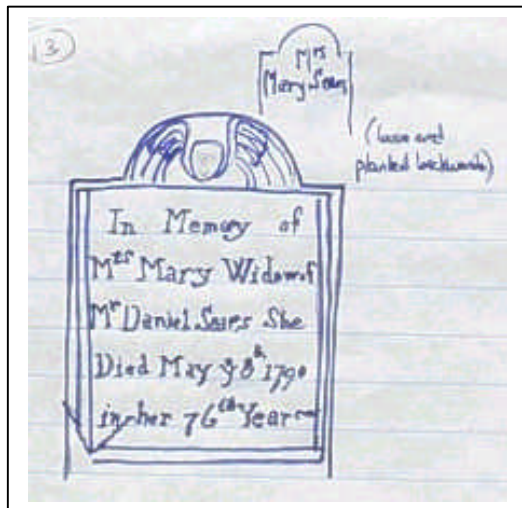 3
Mrs
Mary Sears
(loose and
planted backwards)
In Memory of
Mrs Mary Widow of
Mr Daniel Sears She
Died May 8th 1790
in her 76th Year